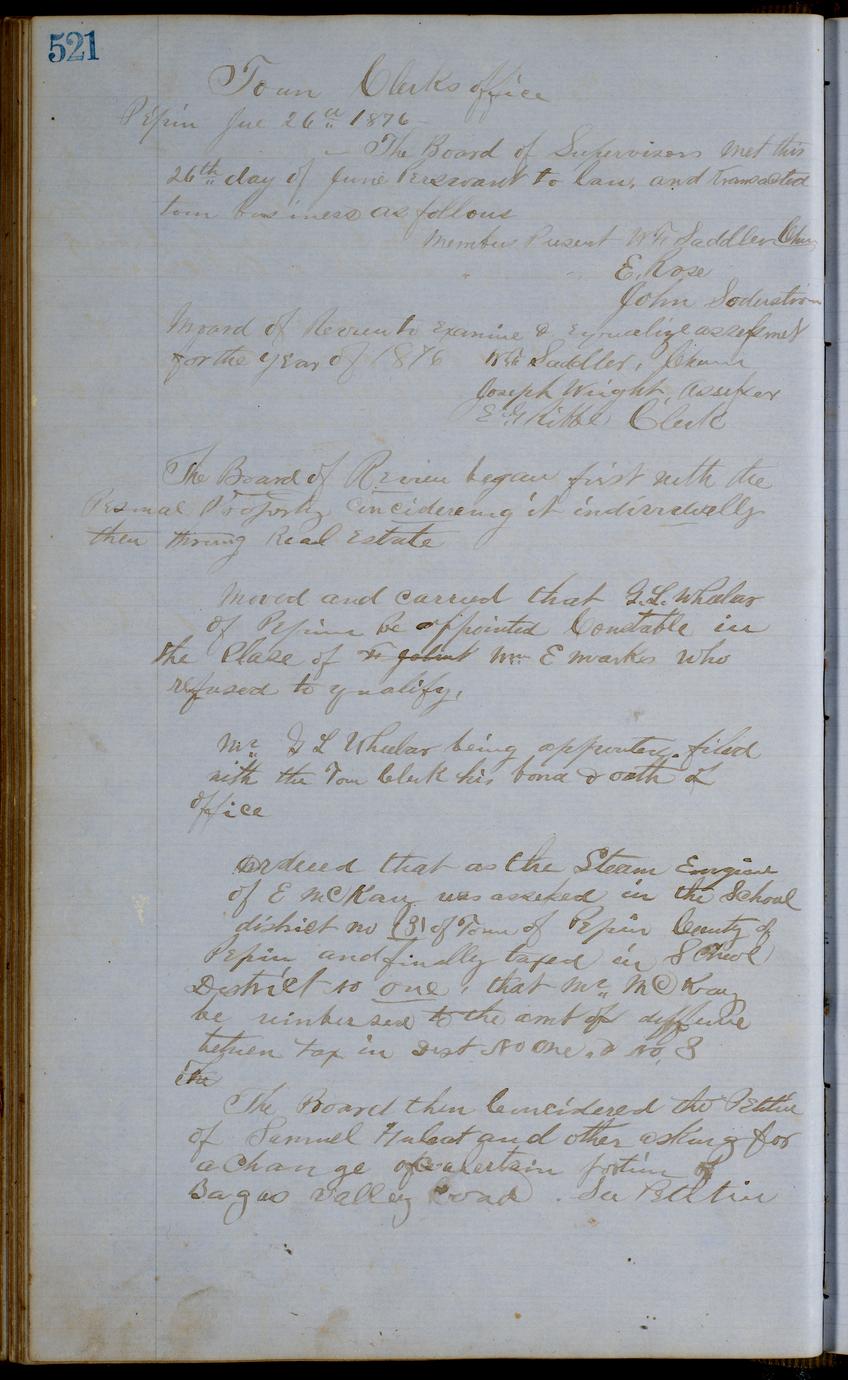 521
Town Clerks office
Pepin Jue 26th 1876
The Board of Supervisors met this
26th day of June Perswant to Law, and transacted
town business as follows
Members Present Saddler Chm
E. Rose
John Soderstrom
Board of Review to Examine & Eqrualize assessmet
for the year of 1876 Saddler, Chairm
Joseph Wright, assessor
Clerk
The Board of Review began first with the
Personal Property Concidereing it individually
then Real Estate
Moved and carried that G.L. Wheelar
of Pepin be appointed Constable in
the Plase of Wm E Markes who
refused to qualify.
Mr. G L Wheelar being appointed filed
with the Town Clerk his bond & oath of
office
ordered that as the Steam Enngine
of E McKay was assesed in the School
district no (3) of Town of Pepin County of
Pepin and finally taxed in School
District no one, that Mr. McKay
be reimbersed to the amt of differnce
between tax in Dist No one. & No. 3
The
The Board then Concidered the Petition
of Samuel and other asking for
a Change of a certain portion of
Bagus Valley Road. See Petition